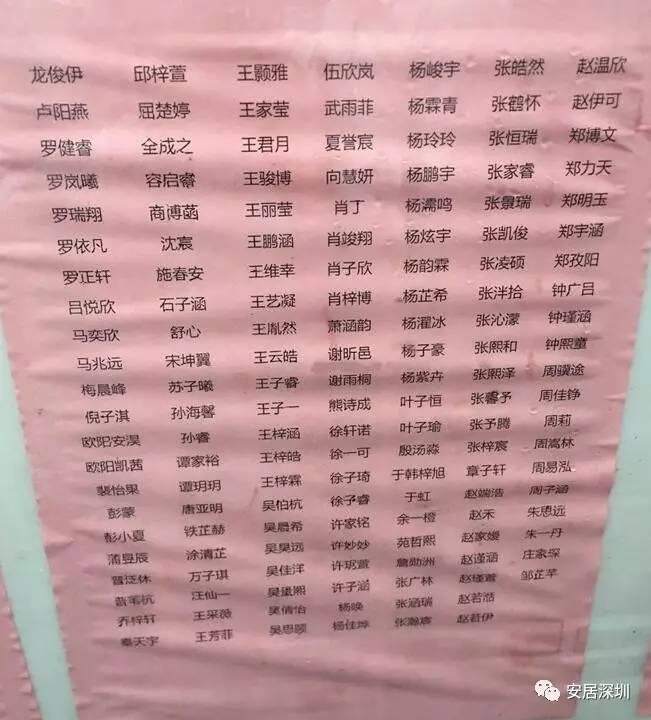 龙俊伊 邱梓萱 王颢雅 伍欣岚 杨峻宇 张皓然 赵温欣
卢阳燕 屈楚婷 王家莹 武雨菲 杨霖青 张鹤怀 赵伊可
罗健睿 全成之 王君月 夏誉宸 杨玲玲 张恒瑞 郑博文
罗岚曦 容启睿 王骏博 向慧妍 杨鹏宇 张家睿 郑力天
罗瑞翔 商博菡 王丽莹 肖丁 杨濡鸣 张景瑞 郑明玉
罗依凡 沈宸 王鹏涵 肖竣翔 杨炫宇 张凯俊 郑宇涵
罗正轩 施春安 王维幸 肖子欣 杨韵霖 张凌硕 郑孜阳
吕悦欣 石子涵 王艺凝 肖梓博 杨芷希 张泮拾 钟广吕
马奕欣 舒心 王胤然 萧涵韵 杨濯冰 张沁濛 钟瑾涵
马兆远 宋坤翼 王云皓 谢昕邑 杨子豪 张熙和 钟熙童
梅晨峰 苏子曦 王子睿 谢雨桐 杨紫卉 张熙泽 周骥途
倪子淇 孙海馨 王子一 熊诗成 叶子恒 张馨予 周佳铮
欧阳安淏 孙睿 王梓涵 徐轩诺 叶子瑜 张予腾 周莉
欧阳凯茜 谭家裕 王梓皓 徐一可 殷汤淼 张梓宸 周嵩林
裴怡果 谭玥玥 王梓霖 徐子琦 于韩梓旭 章子轩 周易泓
彭蒙 唐亚明 吴伯杭 徐子睿 于虹 赵端浩 周子涵
彭小夏 铁芷赫 吴晨希 许家铭 余一橙 赵禾 朱思远
蒲昱辰 涂清芷 吴昊远 许妙妙 苑哲熙 赵家嫒 朱一丹
普泛休 万子琪 吴佳洋 许玳萱 詹勋洲 赵谨涵 庄家琛
汪仙一 熙 许子涵 张广林 赵瑾萱 邹芷芊
乔梓轩 王采薇 吴倩怡 杨唤 张涵瑞 赵若浩
秦天宇 王芳菲 吴思颐 杨佳烨 张瀚宸 赵若伊
安居深圳